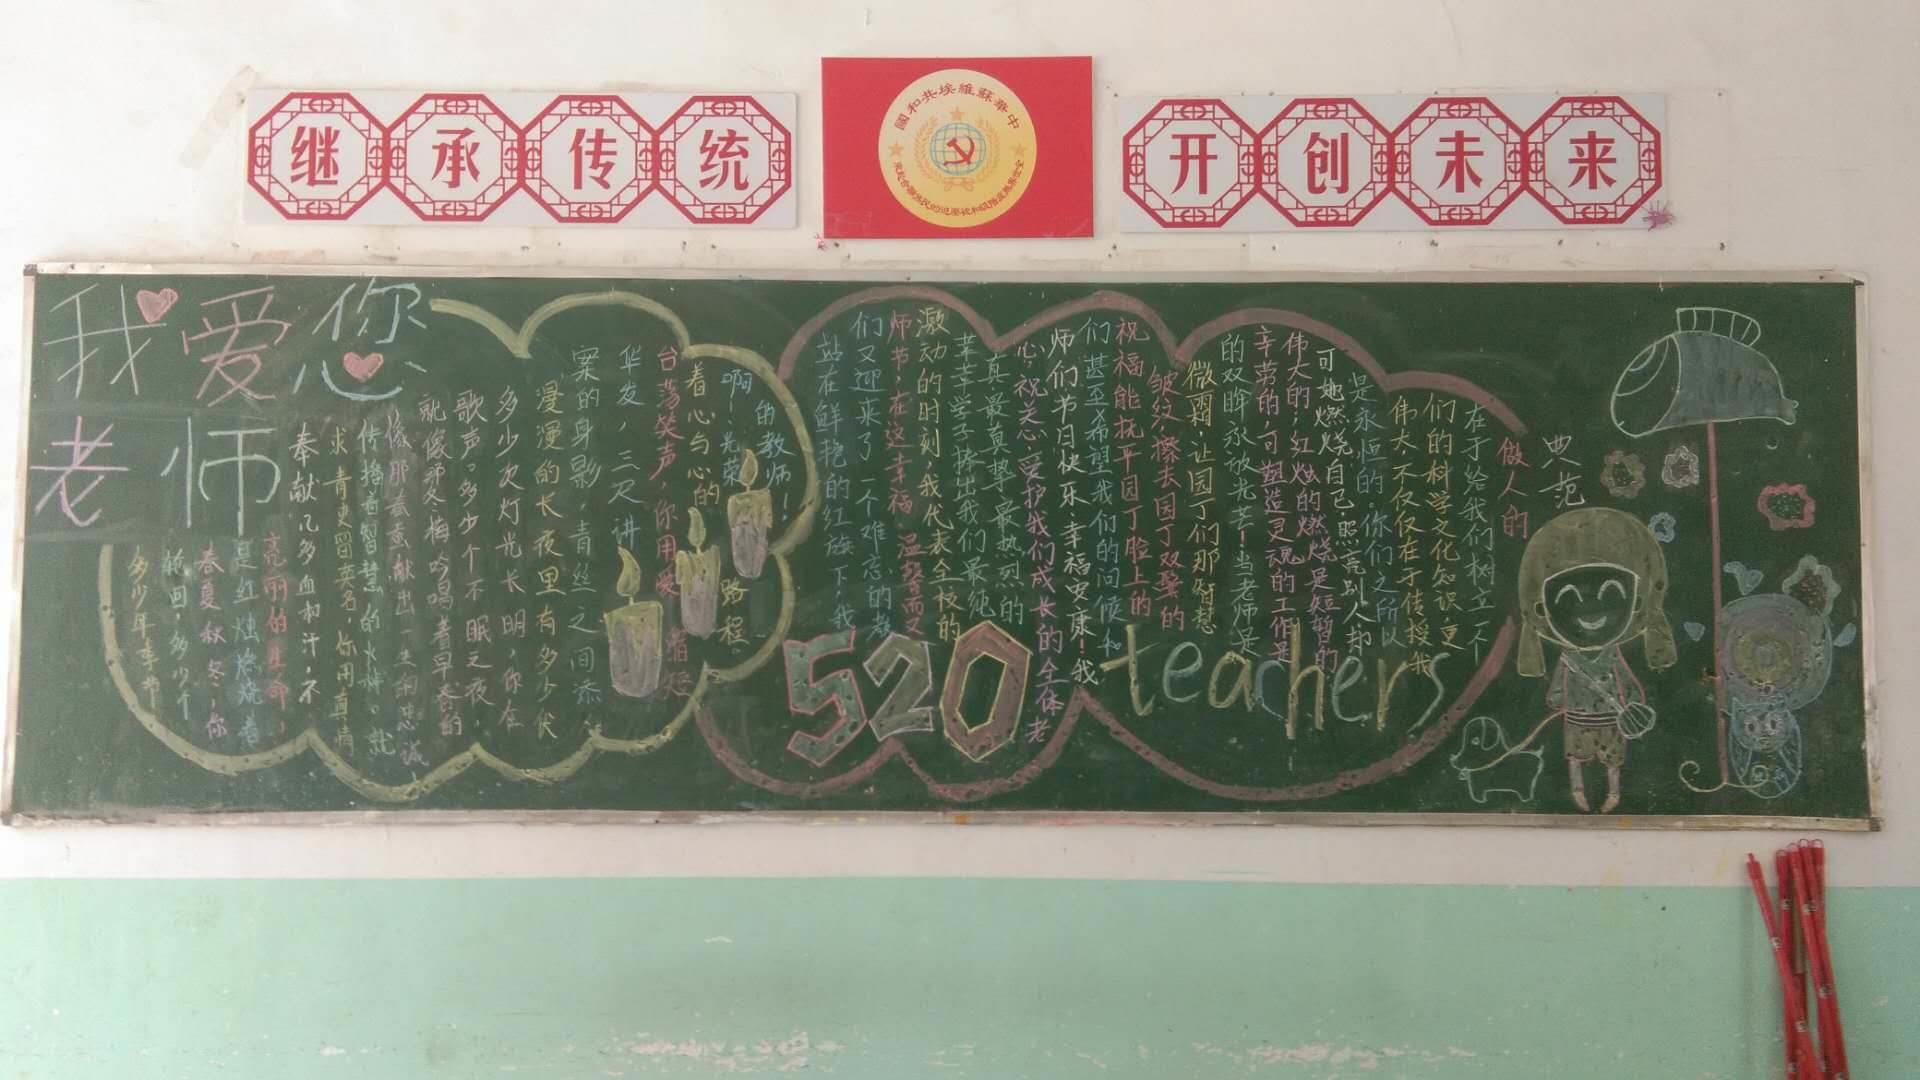 继承传统
中華蘇維埃共和國
全世界無產階級和被壓迫的民族聯合起來
开创未来
我爱您
老师
多少年季节
轮画,多少个
春夏秋冬,你
是红烛燃烧着
亮丽的生命,
奉献几多血和汗,不
求青史留英名,你用真情
传播着智慧的火种。就
像那春蚕献出一生的忠诚
就像那冬梅吟唱着早春的
歌声。多少个不眠之夜,
多少次灯光长明,你在
漫漫的长夜里有多少伏
案的身影,青丝之间添
华发,三尺讲
台荡笑声,你用爱缩短
着心与心的路程。
啊!光荣
的教师!
站在鲜艳的红旗下,我
们又迎来了一个难忘的教
师节,在这幸福、温馨而又
激动的时刻,我代表全校的
莘莘学子捧出我们最纯
真、最真挚、最热烈的
心,祝关心、爱护我们成长的全体老
师们节日快乐 幸福安康!我
们甚至希望我们的问候和
祝福能抚平园丁脸上的
皱纹,擦去园丁双鬓的
微霜,让园丁们那智慧
的双眸永放光芒!当老师是
辛劳的,可塑造灵魂的工作是
伟大的;红烛的燃烧是短暂的
可她燃烧自己 照亮别人却
是永恒的。你们之所以
伟大,不仅仅在于传授我
们的科学文化知识,更
在于给我们树立一个
做人的
典范
520 teachers